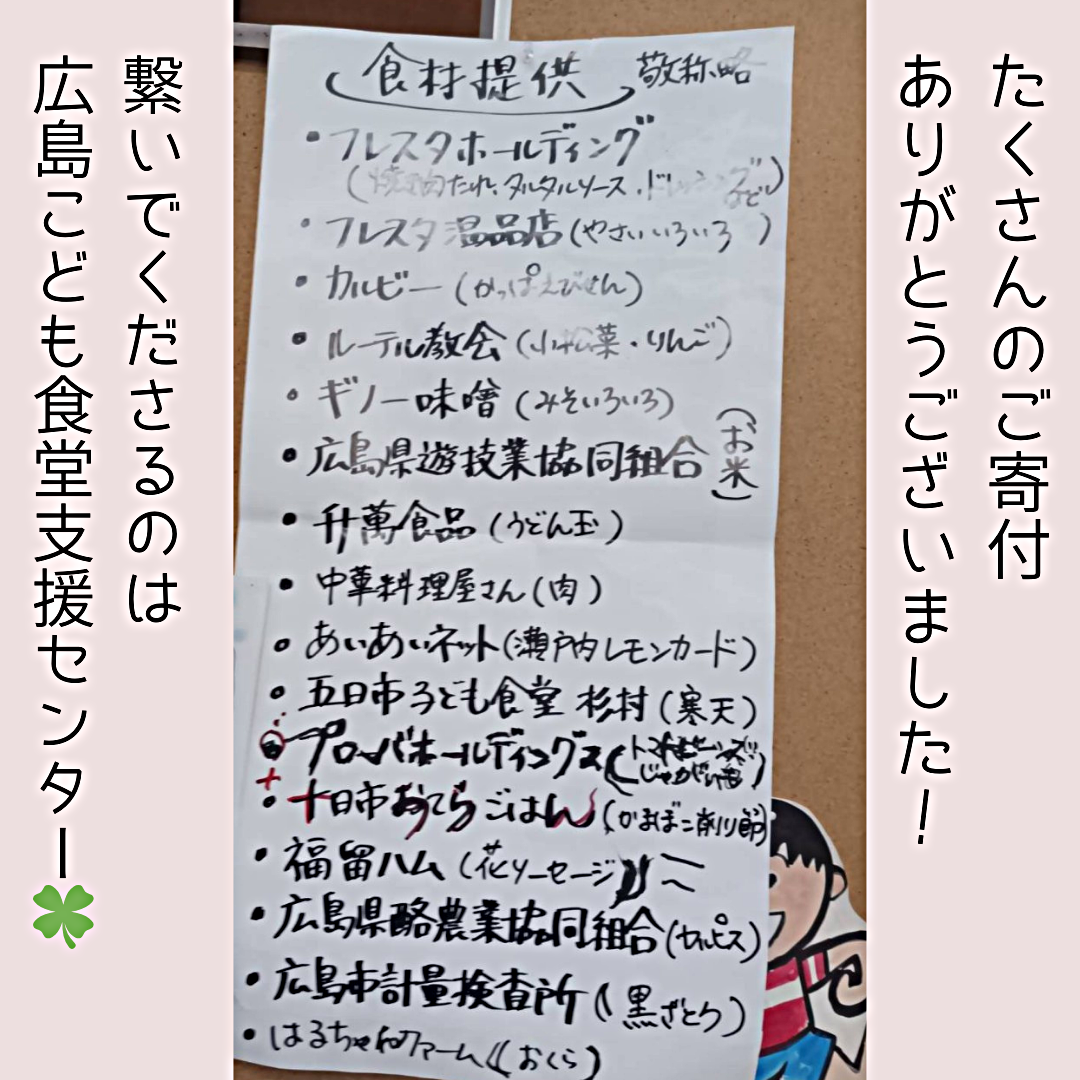 たくさんのご寄付
ありがとうございました！
食材提供 敬称略
・フレスタホールディング
(焼肉たれ、タルタルソース、ドレッシングなど)
・フレスタ温品店(やさいいろいろ)
・カルビー(かっぱえびせん)
・ルーテル教会(小松菜・りんご)
・ギノー味噌(みそいろいろ)
・広島県遊技業協同組合(お米)
・升萬食品(うどん玉)
・中華料理屋さん(肉)
・あいあいネット(瀬戸内レモンカード)
・五日市子ども食堂 杉村(寒天)
・プローバホールディングス(
じゃがいも)
・十日市おてらごはん(かまぼこ削り節)
・福留ハム(花ソーセージ)
・広島県酪農業協同組合(カルピス)
・広島市計量検査所(黒ざとう)
・はるちゃねファーム(おくら)
繋いでくださるのは
広島こども食堂支援センター🍀